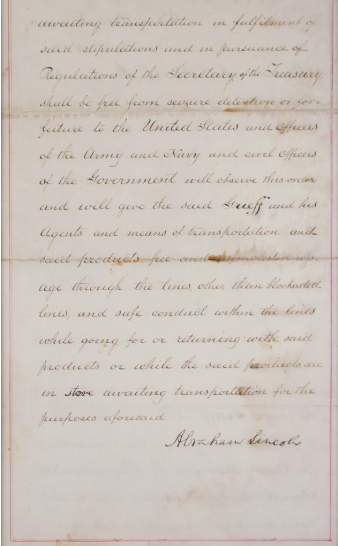 awaiting transportation in fulfilment of
said stipulations and in pursuance of
Regulations of the Secretary of the Treasury
shall be free from seizure detention or for-
feiture to the United States and officers
of the Army and Navy and civil officers
of the Government will observe this order
and will give the said and his
Agents and means of transportation and
said products free and pass-
age through the lines, other than blockaded
lines, and safe conduct within the lines
while going for or returning with said
products or while the said products are
in store awaiting transportation for the
purposes aforesaid
Abraham Lincoln